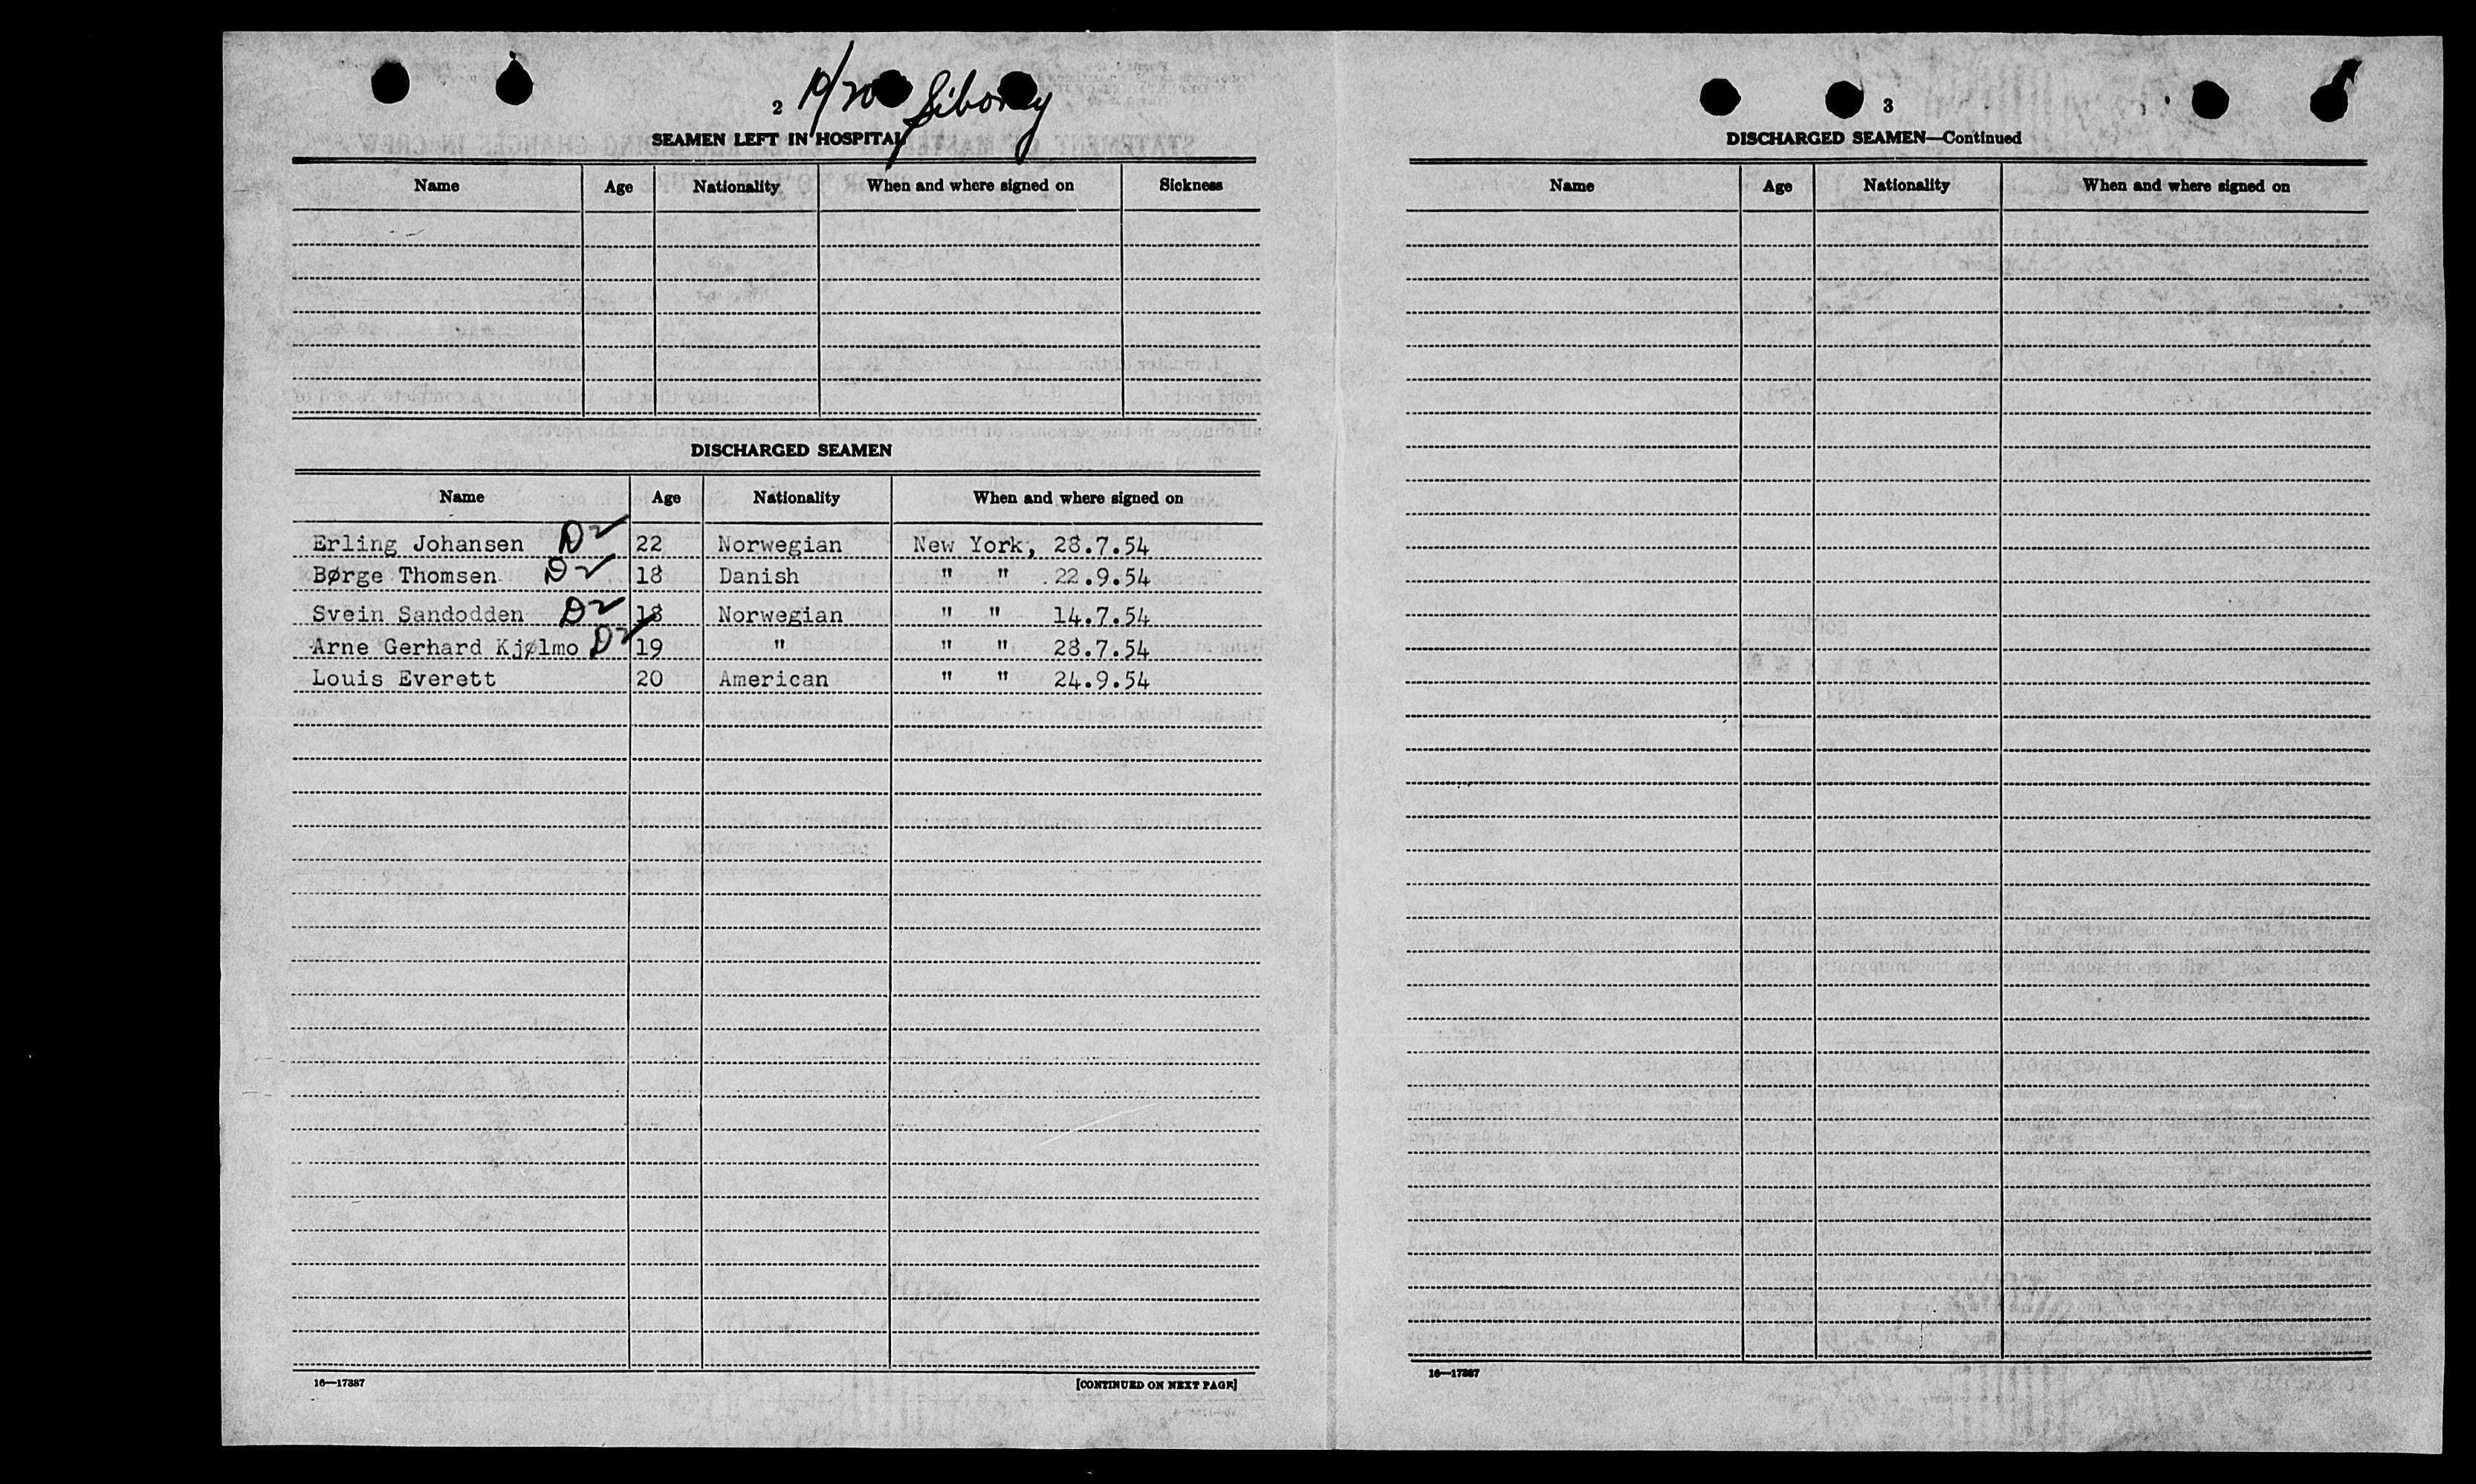 2 10/20 Siboney
SEAMEN LEFT IN HOSPITAL
Name Age Nationality When and where signed on Sickness
DISCHARGED SEAMEN
Name Age Nationality When and where signed on
Erling Johansen D2 22 Norwegian New York, 28.7.54
Børge Thomsen D2 18 Danish " " 22.9.54
Svein Sandodden D2 18 Norwegian " " 14.7.54
Arne Gerhard Kjølmo D2 19 " " " 28.7.54
Louis Everett 20 American " " 24.9.54
16—17387 [CONTINUED ON NEXT PAGE]
3
DISCHARGED SEAMEN—Continued
Name Age Nationality When and where signed on
16—17387